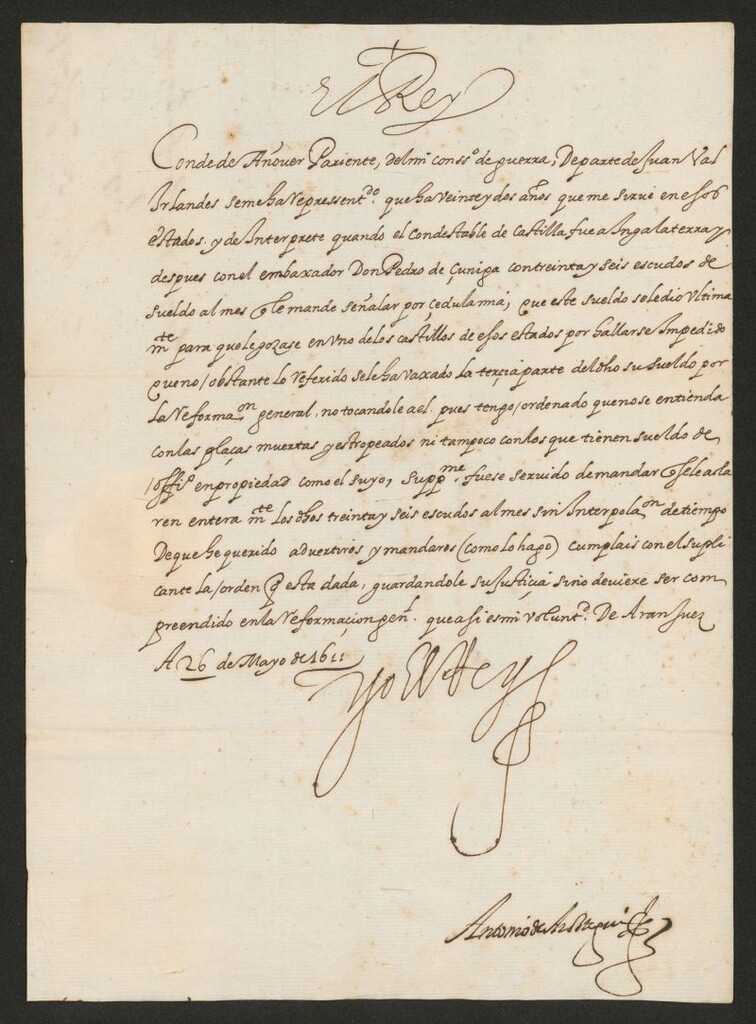 El Rey
Conde de Añover Pariente, del mi consso. de guerra, De parte de Juan Val
Irlandes se me ha Repressentdo. que ha Veinte y dos años que me sirue en esos
estados. y de Interprete quando el Condestable de Castilla fue a Ingalaterra y
despues con el embaxador Don Pedro de Çuniga con treinta y seis escudos de
sueldo al mes q le mande señalar por çedula mia, que este sueldo se le dio Vltima
mte para que le gozase en Vno de los castillos de esos estados por hallarse Impedido
que no obstante lo Referido se le ha Vaxado La terçia parte del dho su sueldo por
La Reformaon general, no tocandole a el. pues tengo ordenado que no se entienda
con las plaças muertas y estropeados ni tampoco con los que tienen sueldo de
offio en propiedad como el suyo, Suppme. fuese seruido de mandar q se le acla
ren enteramte Los dhos treinta y seis escudos al mes sin Interpolaon de tiempo
De que he querido aduertiros y mandaros (como lo hago) cumplais con el supli
cante la orden q esta dada, guardandole su Justicia sino deuiere ser com
preendido en la Reformacion genl. que asi es mi Voluntd. De Aranjuez
A 26 de Mayo de 1611
Yo El Rey
Antonio de Arostegui